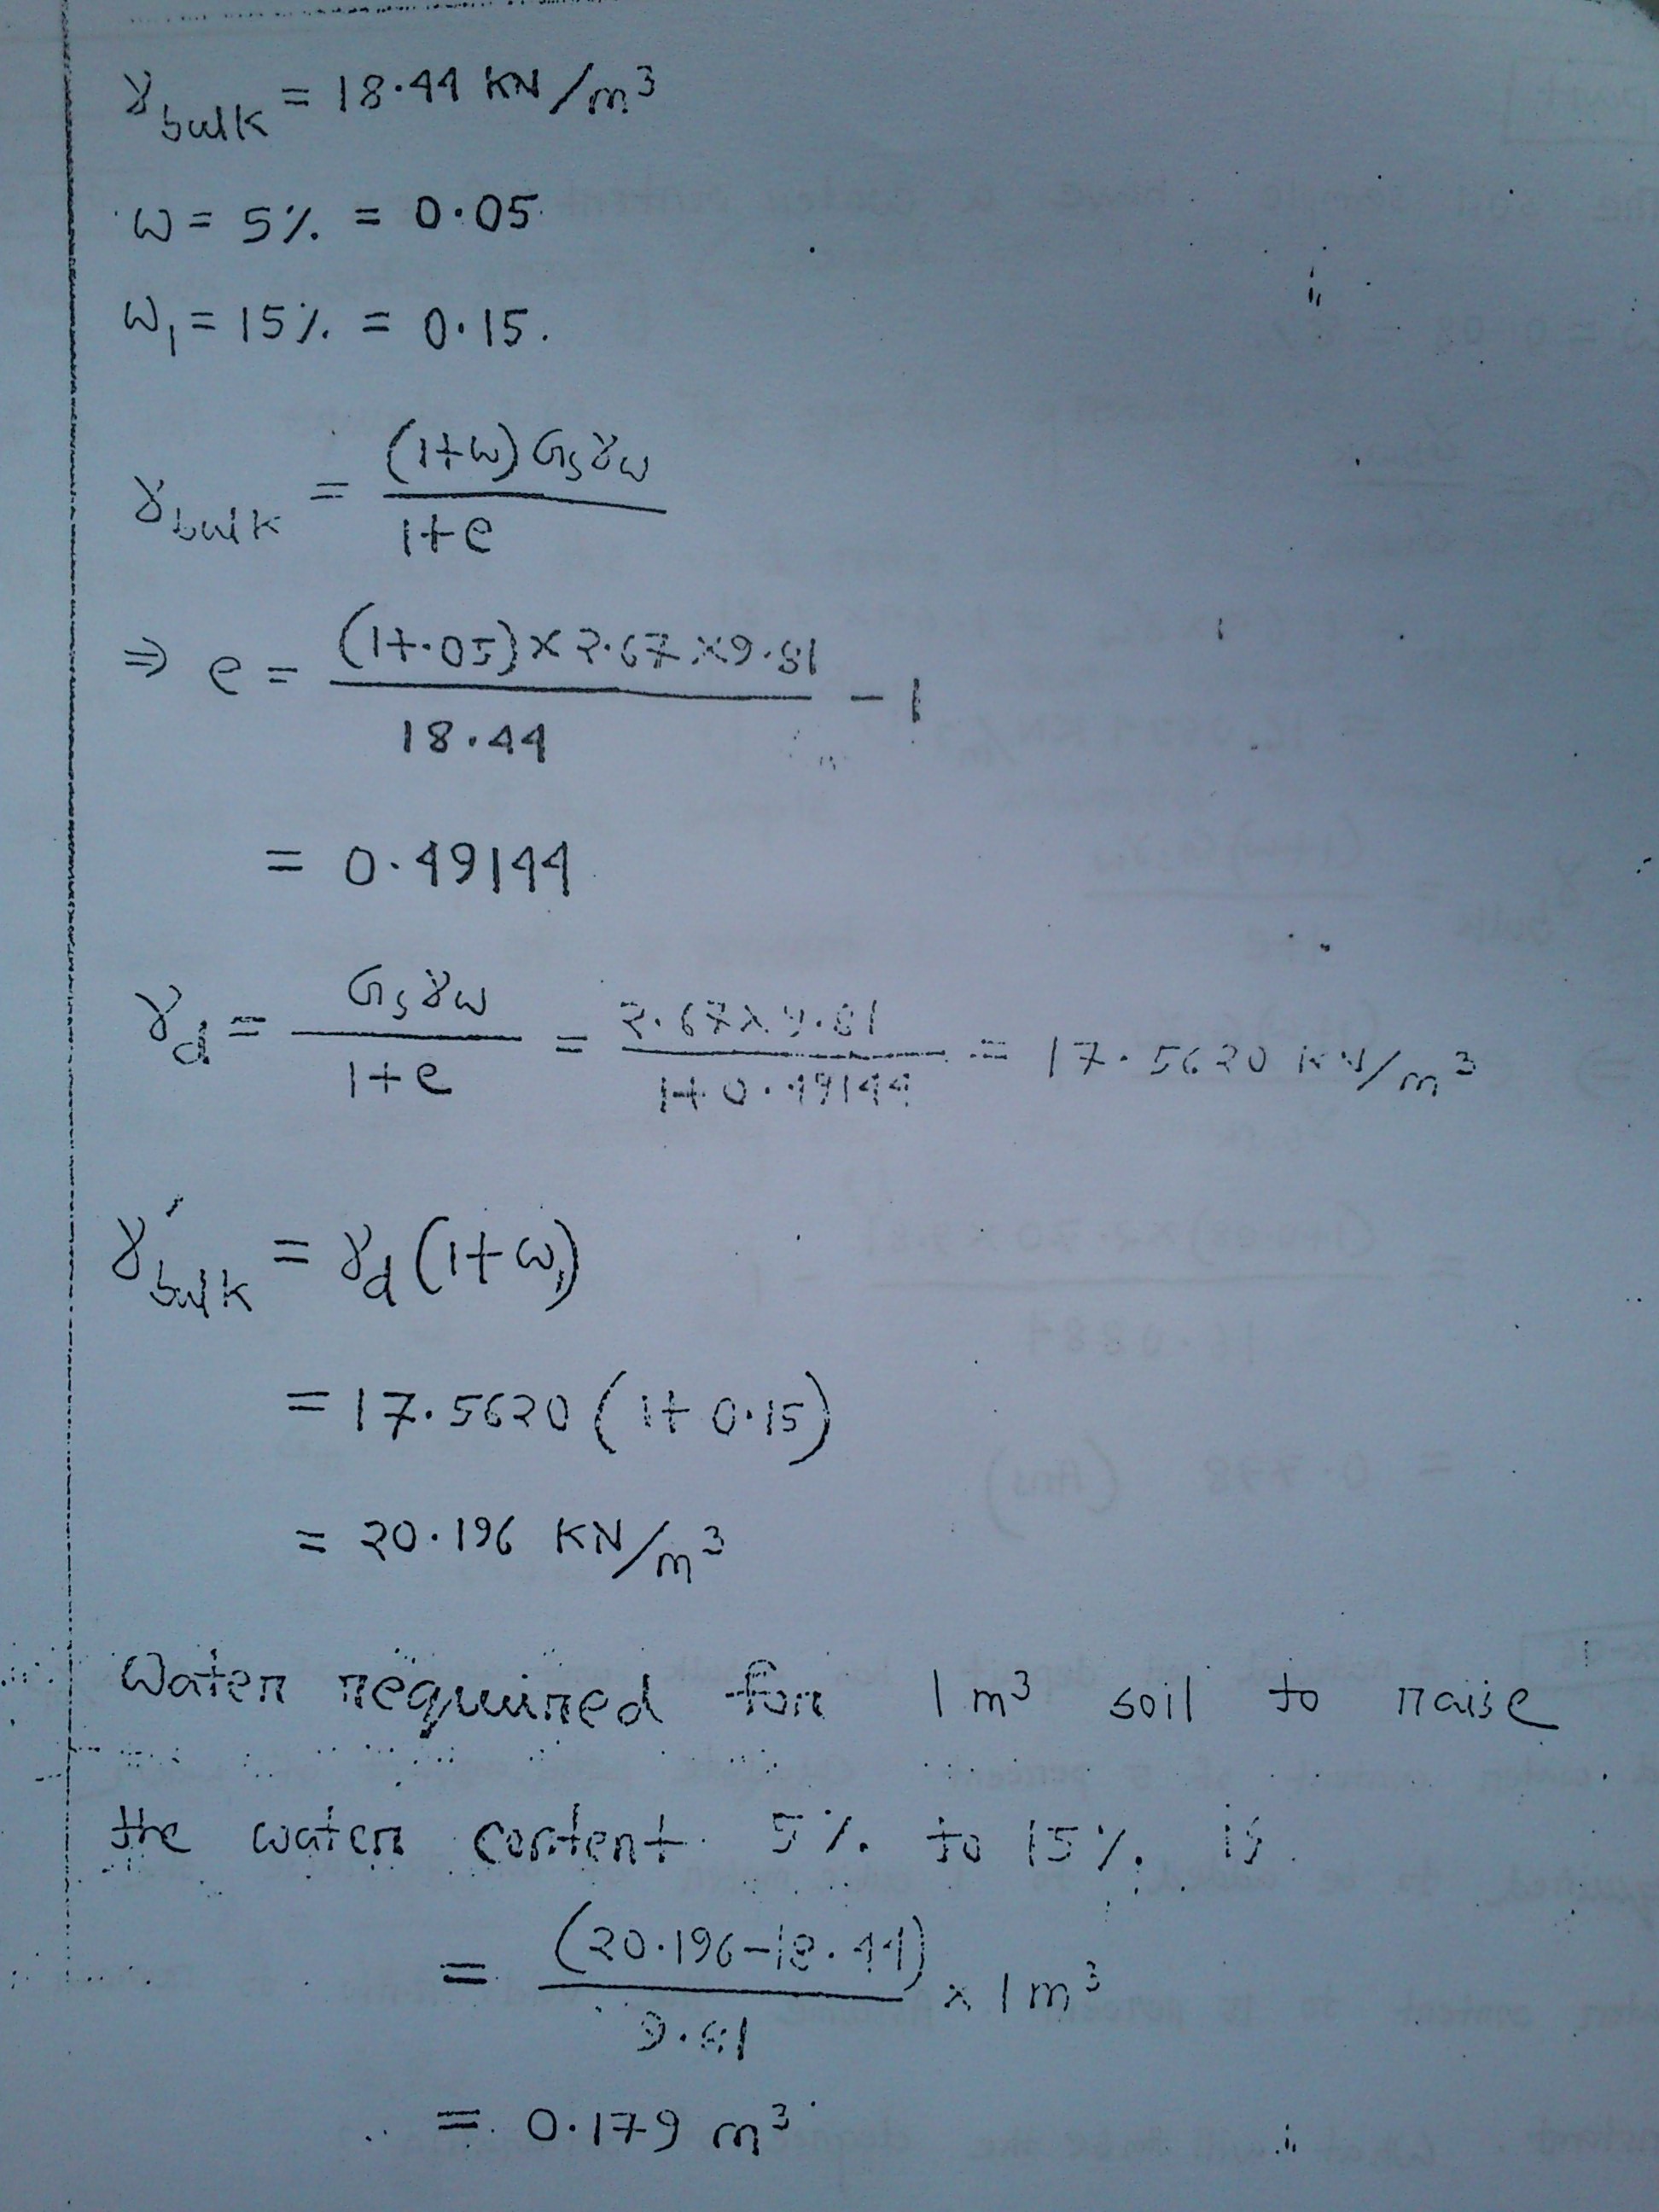 γbulk = 18.44 KN/m³
ω = 5% = 0.05
ω₁ = 15% = 0.15.
γbulk = (1+ω)Gsγω / 1+e
⇒ e = (1+.05)×2.67×9.81 / 18.44 - 1
= 0.49144
γd = Gsγω / 1+e = 2.67×9.81 / 1+0.49144 = 17.5620 KN/m³
γ′bulk = γd(1+ω₁)
= 17.5620(1+0.15)
= 20.196 KN/m³
Water required for 1 m³ soil to raise
the water content 5% to 15% is
= (20.196-18.44) / 9.81 × 1 m³
= 0.179 m³